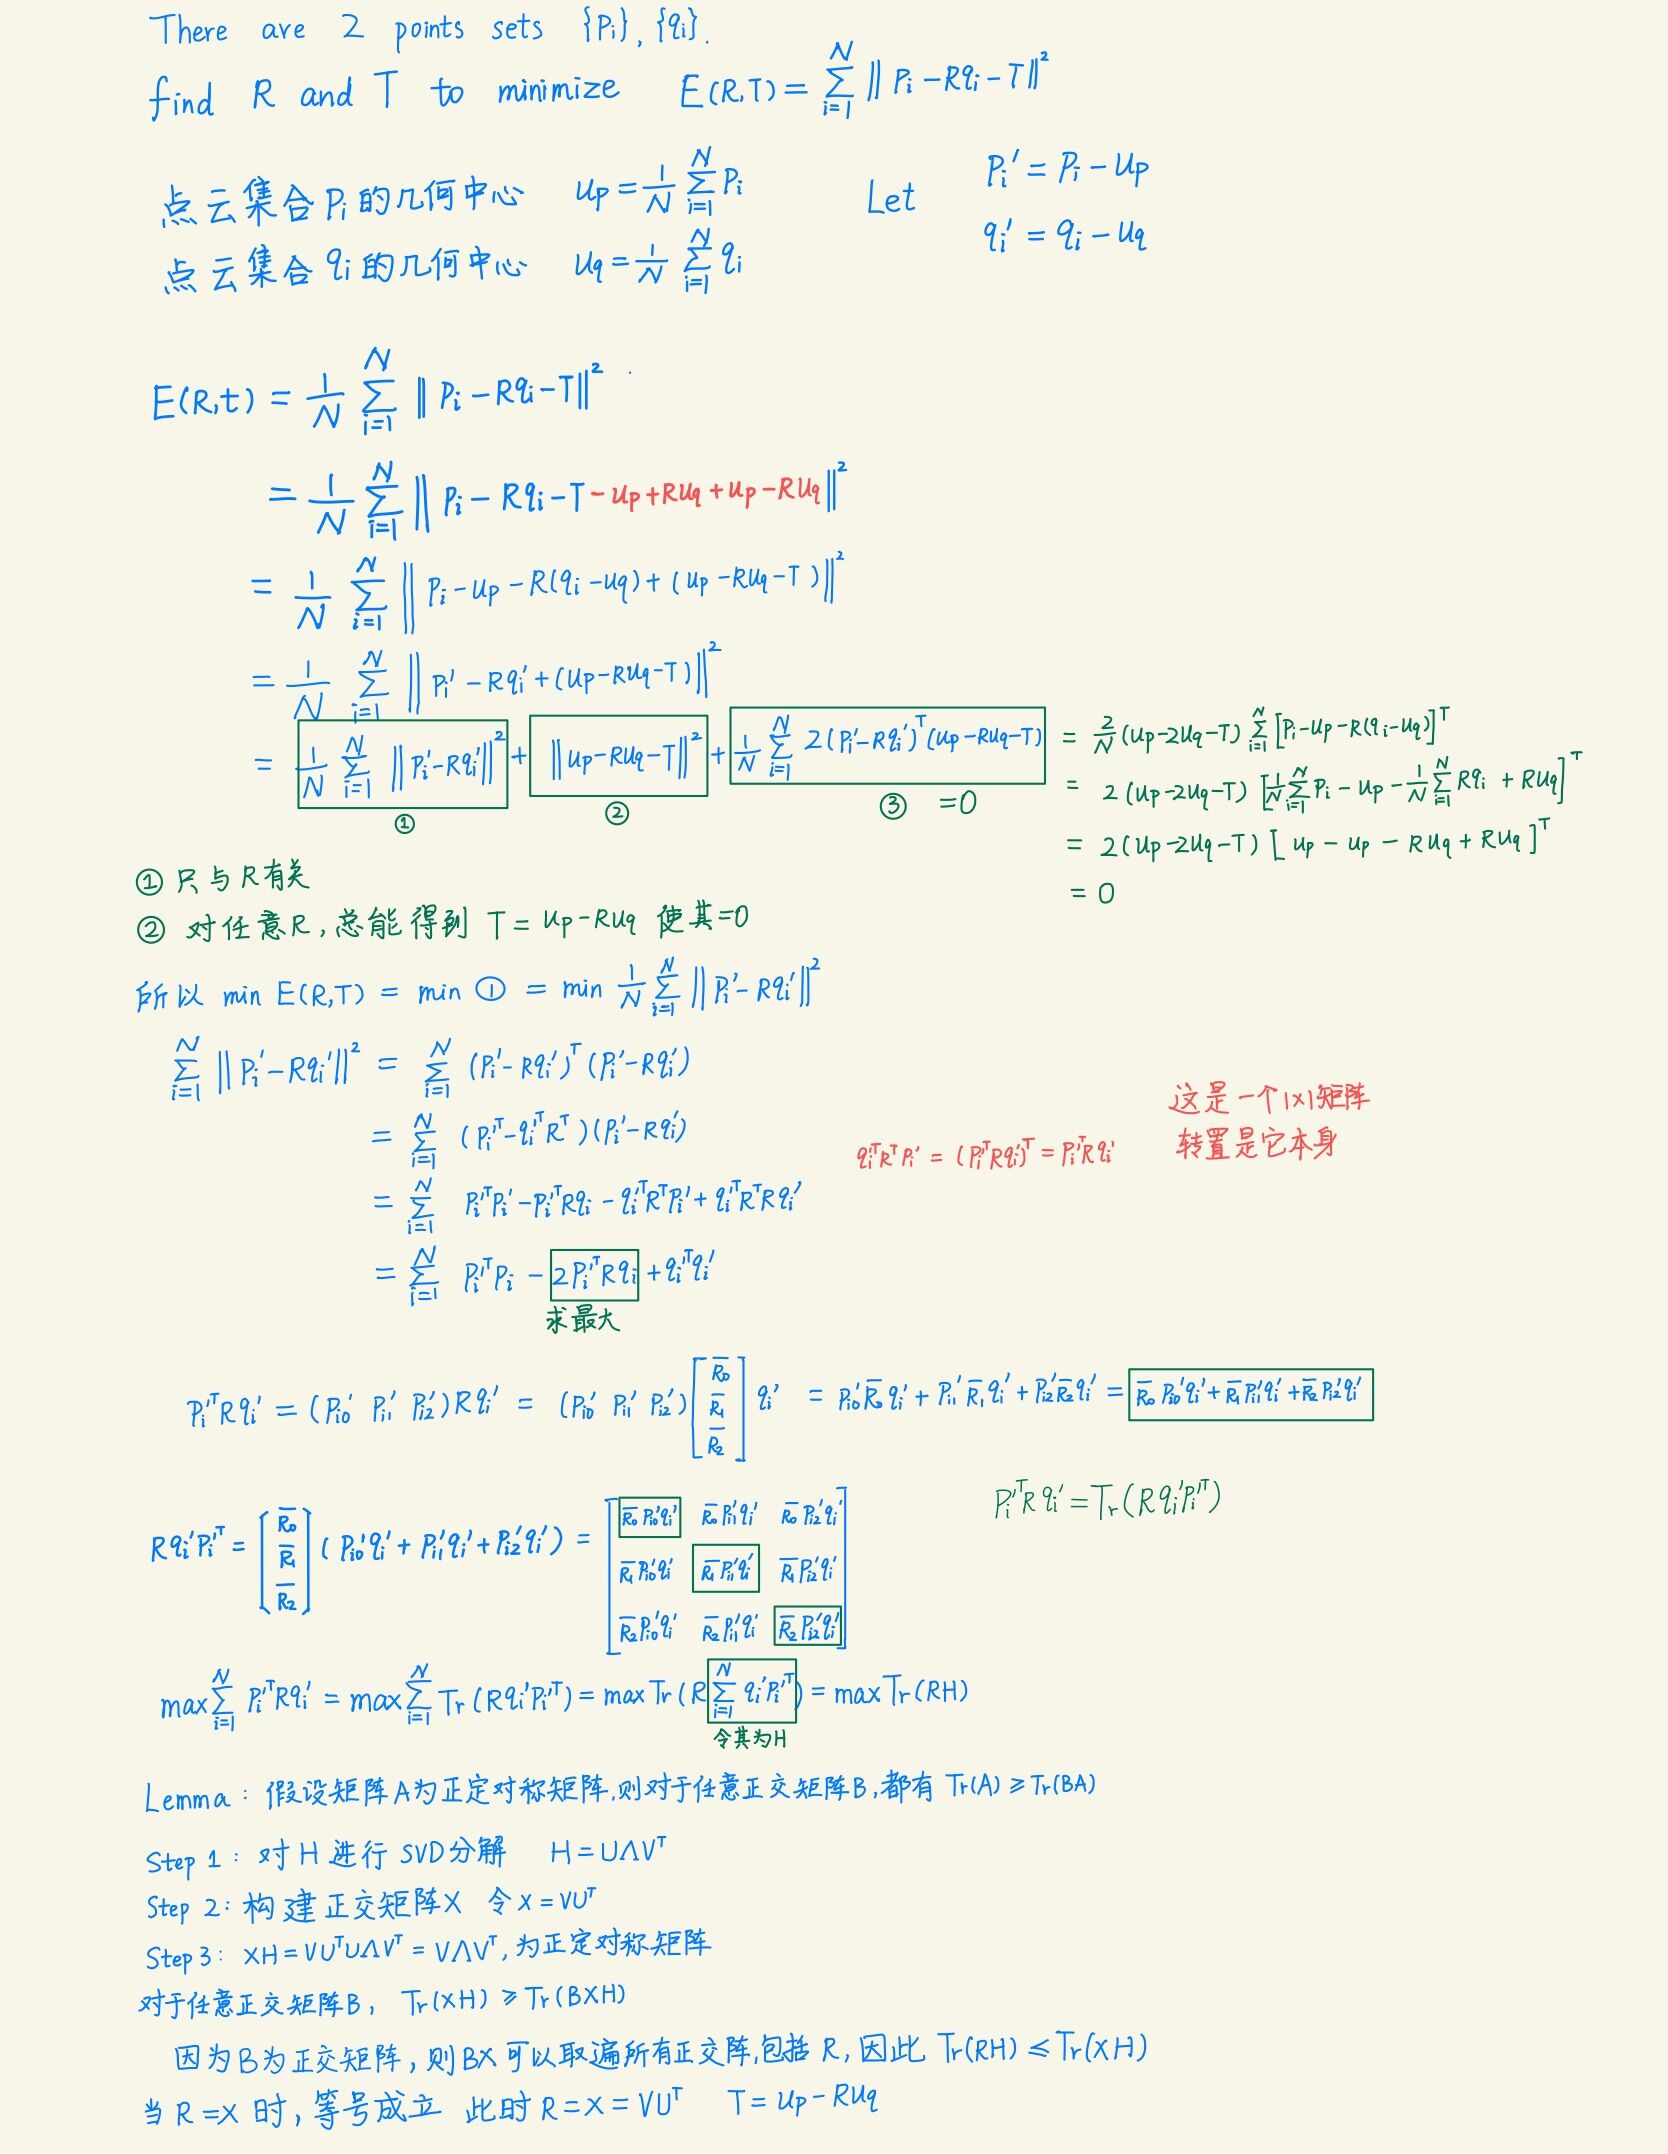 There are 2 points sets {Pi}, {qi}.
find R and T to minimize E(R,T) = Σ_{i=1}^{N} ‖Pi − Rqi − T‖²
点云集合 Pi 的几何中心 up = 1/N Σ_{i=1}^{N} Pi Let Pi' = Pi − up
点云集合 qi 的几何中心 uq = 1/N Σ_{i=1}^{N} qi qi' = qi − uq
E(R,t) = 1/N Σ_{i=1}^{N} ‖Pi − Rqi − T‖²
= 1/N Σ_{i=1}^{N} ‖Pi − Rqi − T − up + Ruq + up − Ruq‖²
= 1/N Σ_{i=1}^{N} ‖Pi − up − R(qi − uq) + (up − Ruq − T)‖²
= 1/N Σ_{i=1}^{N} ‖Pi' − Rqi' + (up − Ruq − T)‖²
= 1/N Σ_{i=1}^{N} ‖Pi' − Rqi'‖² + ‖up − Ruq − T‖² + 1/N Σ_{i=1}^{N} 2(Pi' − Rqi')^T (up − Ruq − T) = 2/N (up − 2uq − T) Σ_{i=1}^{N} [Pi − up − R(qi − uq)]^T
① ② ③ =0
= 2(up − 2uq − T) [1/N Σ_{i=1}^{N} Pi − up − 1/N Σ_{i=1}^{N} Rqi + Ruq]^T
= 2(up − 2uq − T) [up − up − Ruq + Ruq]^T
= 0
① 只与R有关
② 对任意R,总能得到 T = up − Ruq 使其=0
所以 min E(R,T) = min ① = min 1/N Σ_{i=1}^{N} ‖Pi' − Rqi'‖²
Σ_{i=1}^{N} ‖Pi' − Rqi'‖² = Σ_{i=1}^{N} (Pi' − Rqi')^T (Pi' − Rqi')
= Σ_{i=1}^{N} (Pi'^T − qi'^T R^T)(Pi' − Rqi')
qi'^T R^T Pi' = (Pi'^T Rqi')^T = Pi'^T Rqi'
这是一个1×1矩阵
转置是它本身
= Σ_{i=1}^{N} Pi'^T Pi' − Pi'^T Rqi − qi'^T R^T Pi' + qi'^T R^T Rqi'
= Σ_{i=1}^{N} Pi'^T Pi − 2Pi'^T Rqi + qi'^T qi'
求最大
Pi'^T Rqi' = (Pi0' Pi1' Pi2') Rqi' = (Pi0' Pi1' Pi2') [R̅0 R̅1 R̅2] qi' = Pi0' R̅0 qi' + Pi1' R̅1 qi' + Pi2' R̅2 qi' = R̅0 Pi0' qi' + R̅1 Pi1' qi' + R̅2 Pi2' qi'
Pi'^T Rqi' = Tr(Rqi' Pi'^T)
Rqi' Pi'^T = [R̅0 R̅1 R̅2] (Pi0' qi' + Pi1' qi' + Pi2' qi') = [R̅0 Pi0' qi' R̅0 Pi1' qi' R̅0 Pi2' qi'
R̅1 Pi0' qi' R̅1 Pi1' qi' R̅1 Pi2' qi'
R̅2 Pi0' qi' R̅2 Pi1' qi' R̅2 Pi2' qi']
max Σ_{i=1}^{N} Pi'^T Rqi' = max Σ_{i=1}^{N} Tr(Rqi' Pi'^T) = max Tr(R Σ_{i=1}^{N} qi' Pi'^T) = max Tr(RH)
令其为H
Lemma: 假设矩阵A为正定对称矩阵,则对于任意正交矩阵B,都有 Tr(A) ≥ Tr(BA)
Step 1: 对H进行SVD分解 H = UΛV^T
Step 2: 构建正交矩阵X 令 X = VU^T
Step 3: XH = VU^T UΛV^T = VΛV^T, 为正定对称矩阵
对于任意正交矩阵B, Tr(XH) ≥ Tr(BXH)
因为B为正交矩阵,则BX可以取遍所有正交阵,包括R,因此 Tr(RH) ≤ Tr(XH)
当 R = X 时,等号成立 此时 R = X = VU^T T = up − Ruq